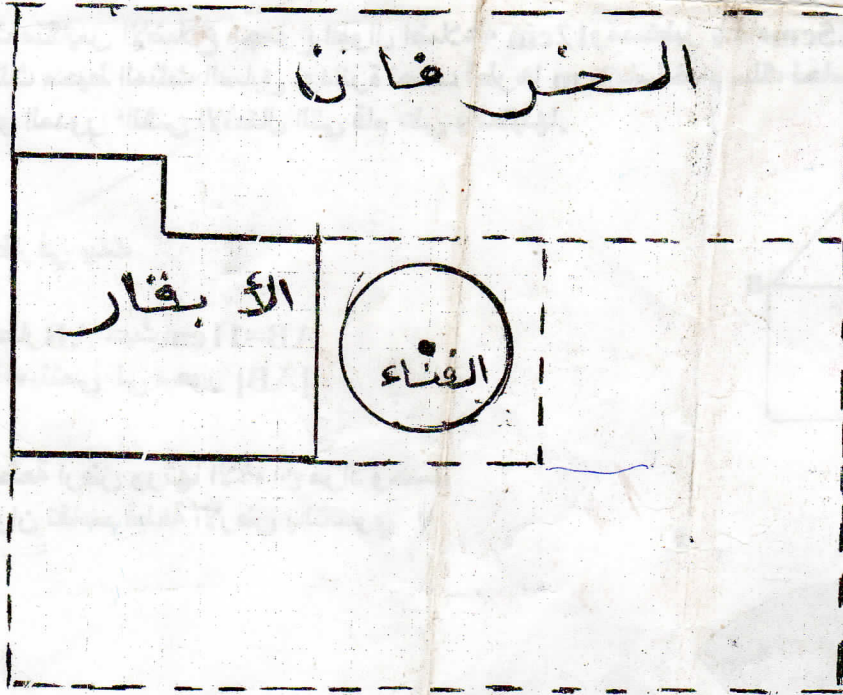 الخرفان
الأبقار
الفناء